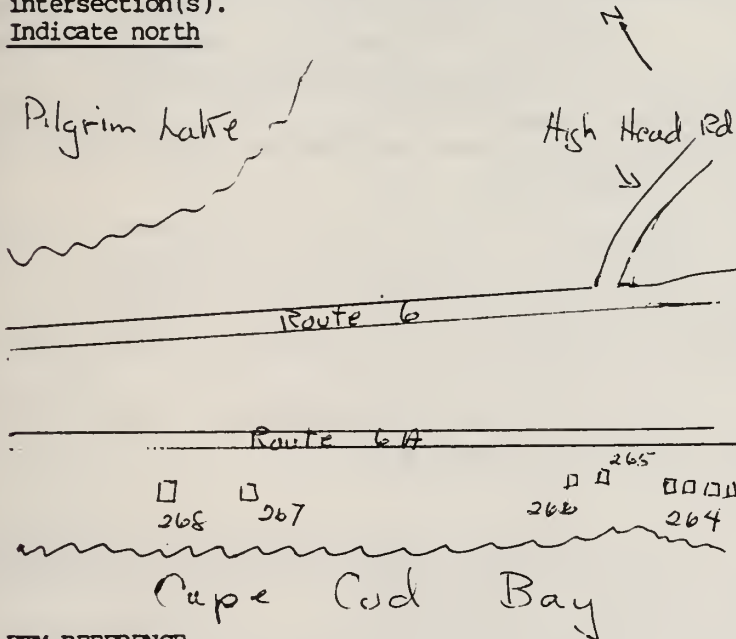 intersection(s).
Indicate north
N
Pilgrim Lake
High Head Rd
Route 6
Route 6A
265
268
267
266
264
Cape Cod Bay
UTM REFERENCE